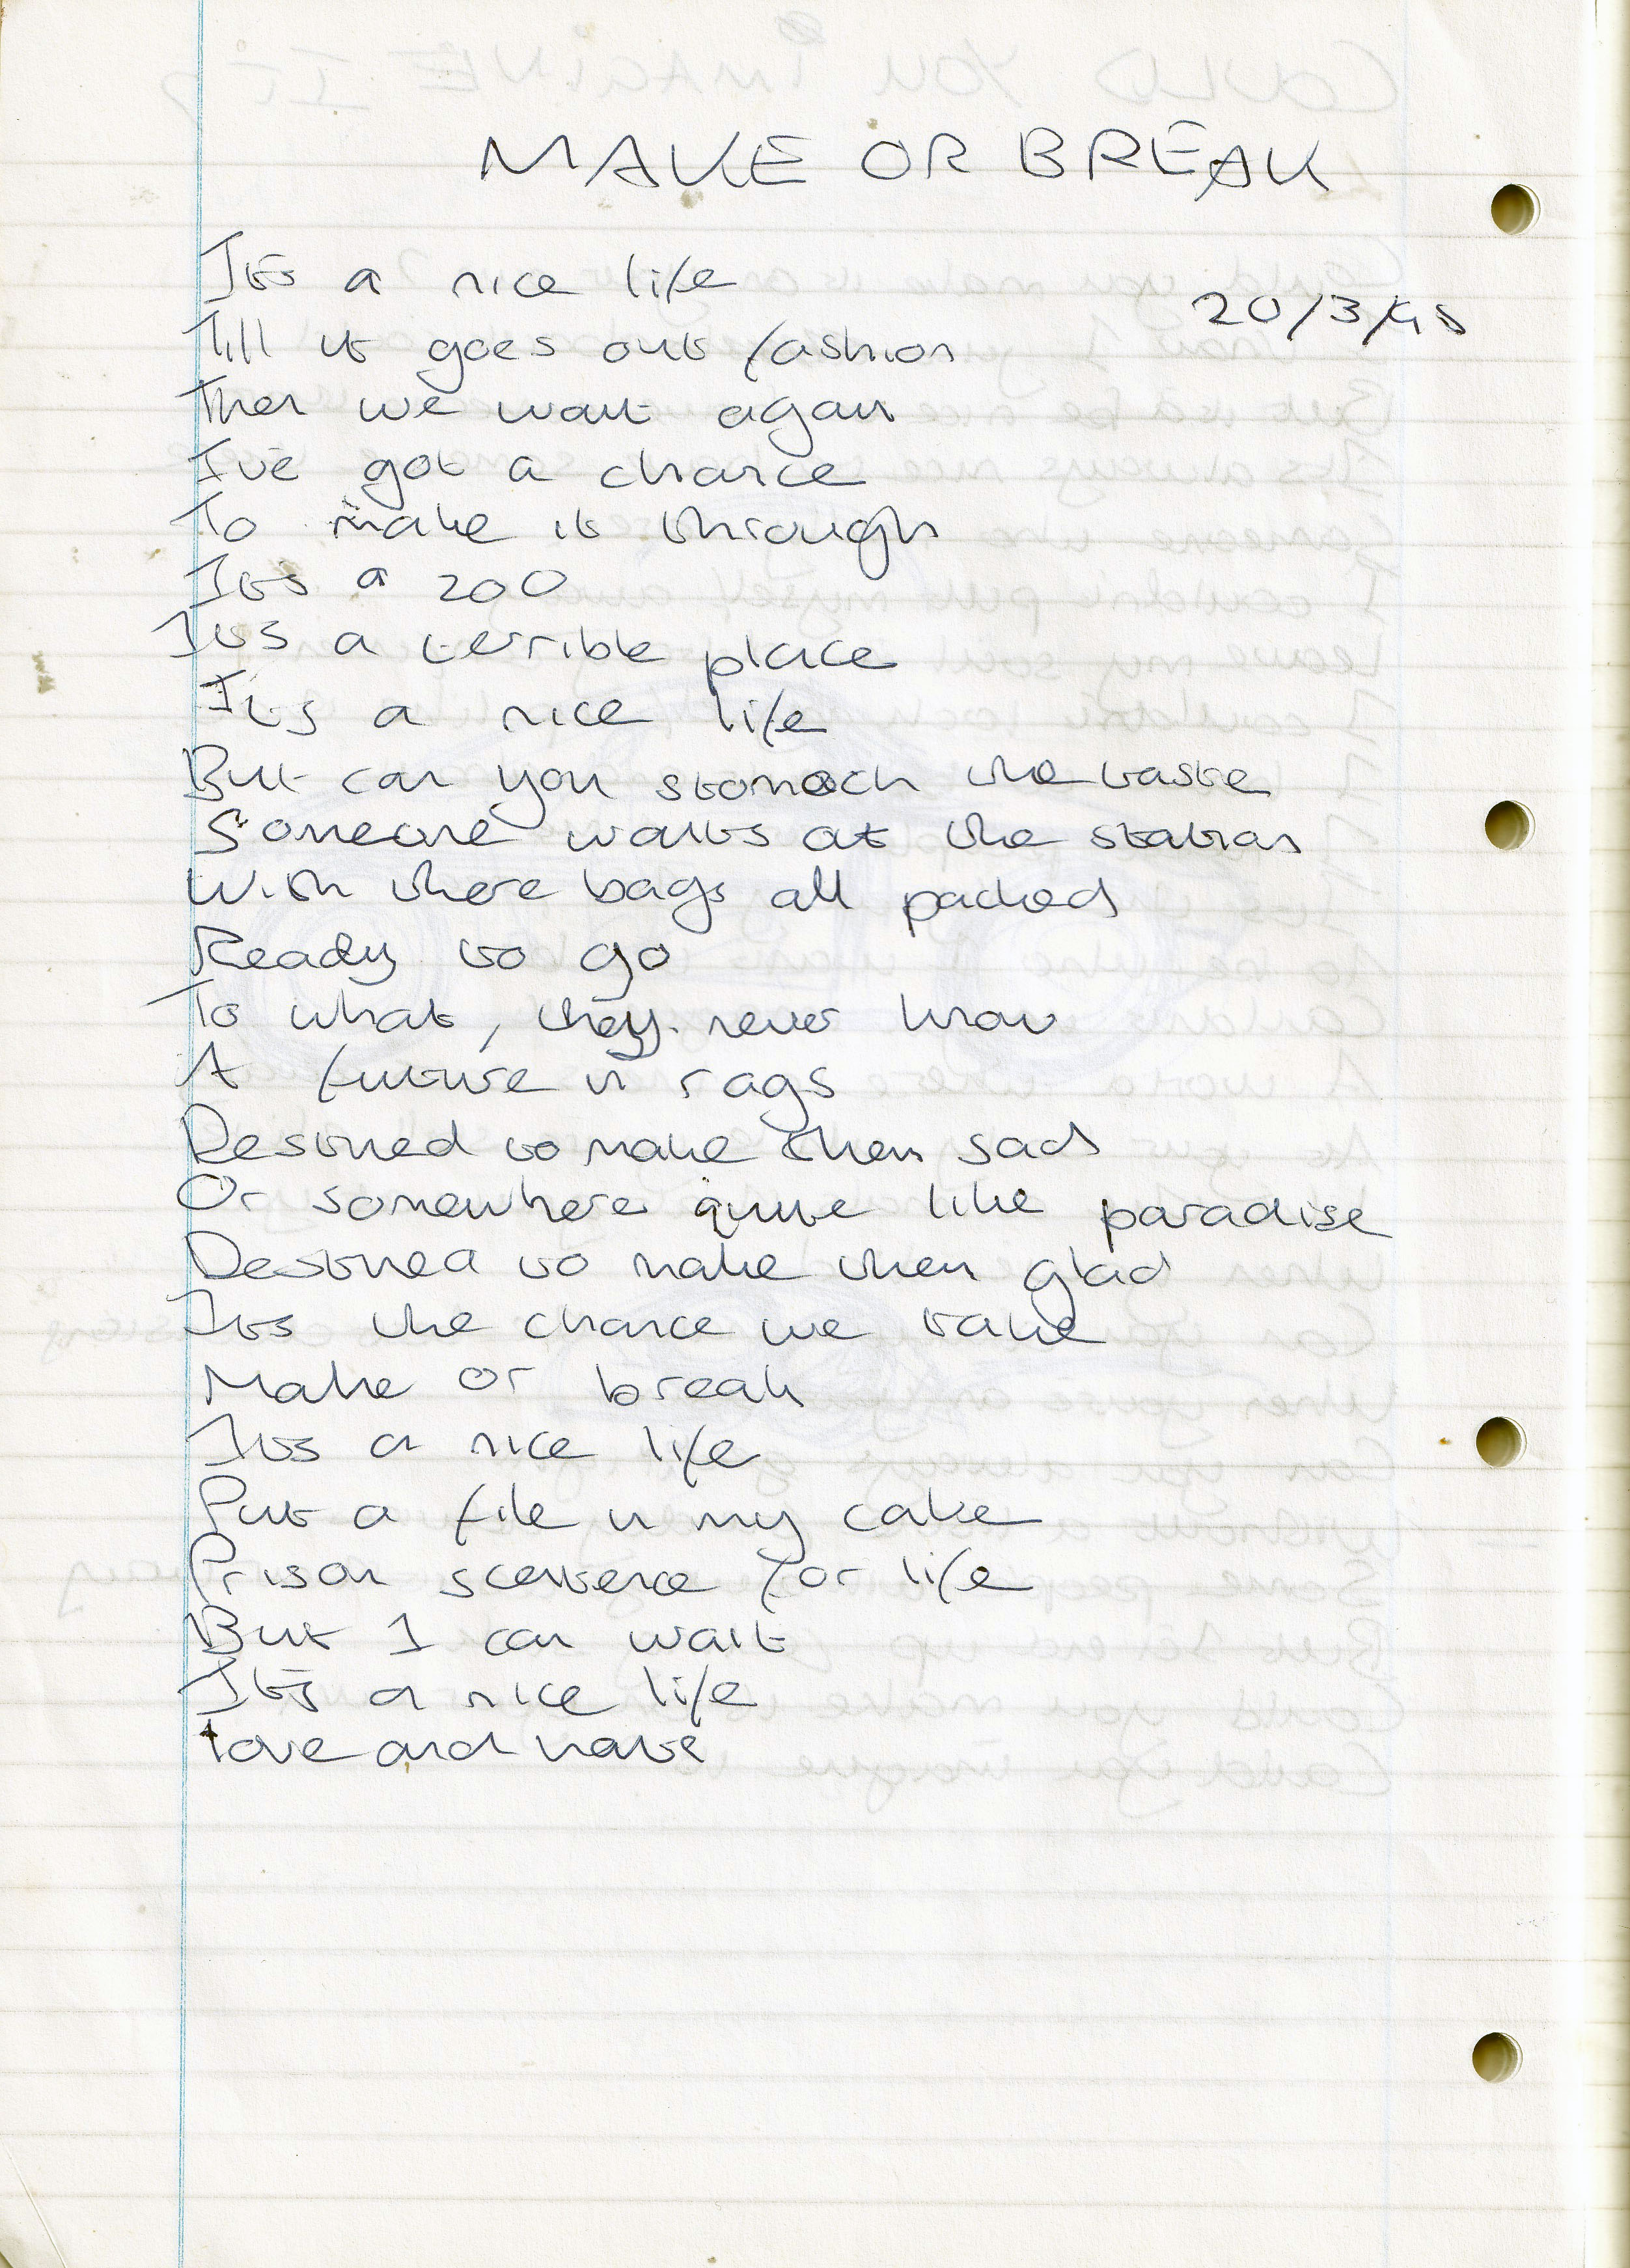 MAKE OR BREAK
Its a nice life
20/3/95
Till it goes out fashion
Then we wait again
I've got a chance
To make it through
Its a zoo
Its a terrible place
Its a nice life
But can you stomach the taste
Someone waits at the station
With there bags all packed
Ready to go
To what, they never know
A future in rags
Destined to make them sad
Or somewhere quite like paradise
Destined to make them glad
Its the chance we take
Make or break
Its a nice life
Put a file in my cake
Prison scentence for life
But I can wait
Its a nice life
love and hate